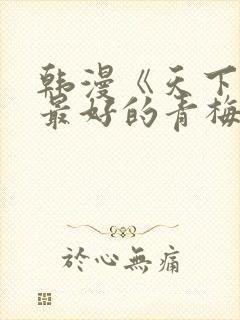 韩漫《天下
最好的青梅
於心無痛